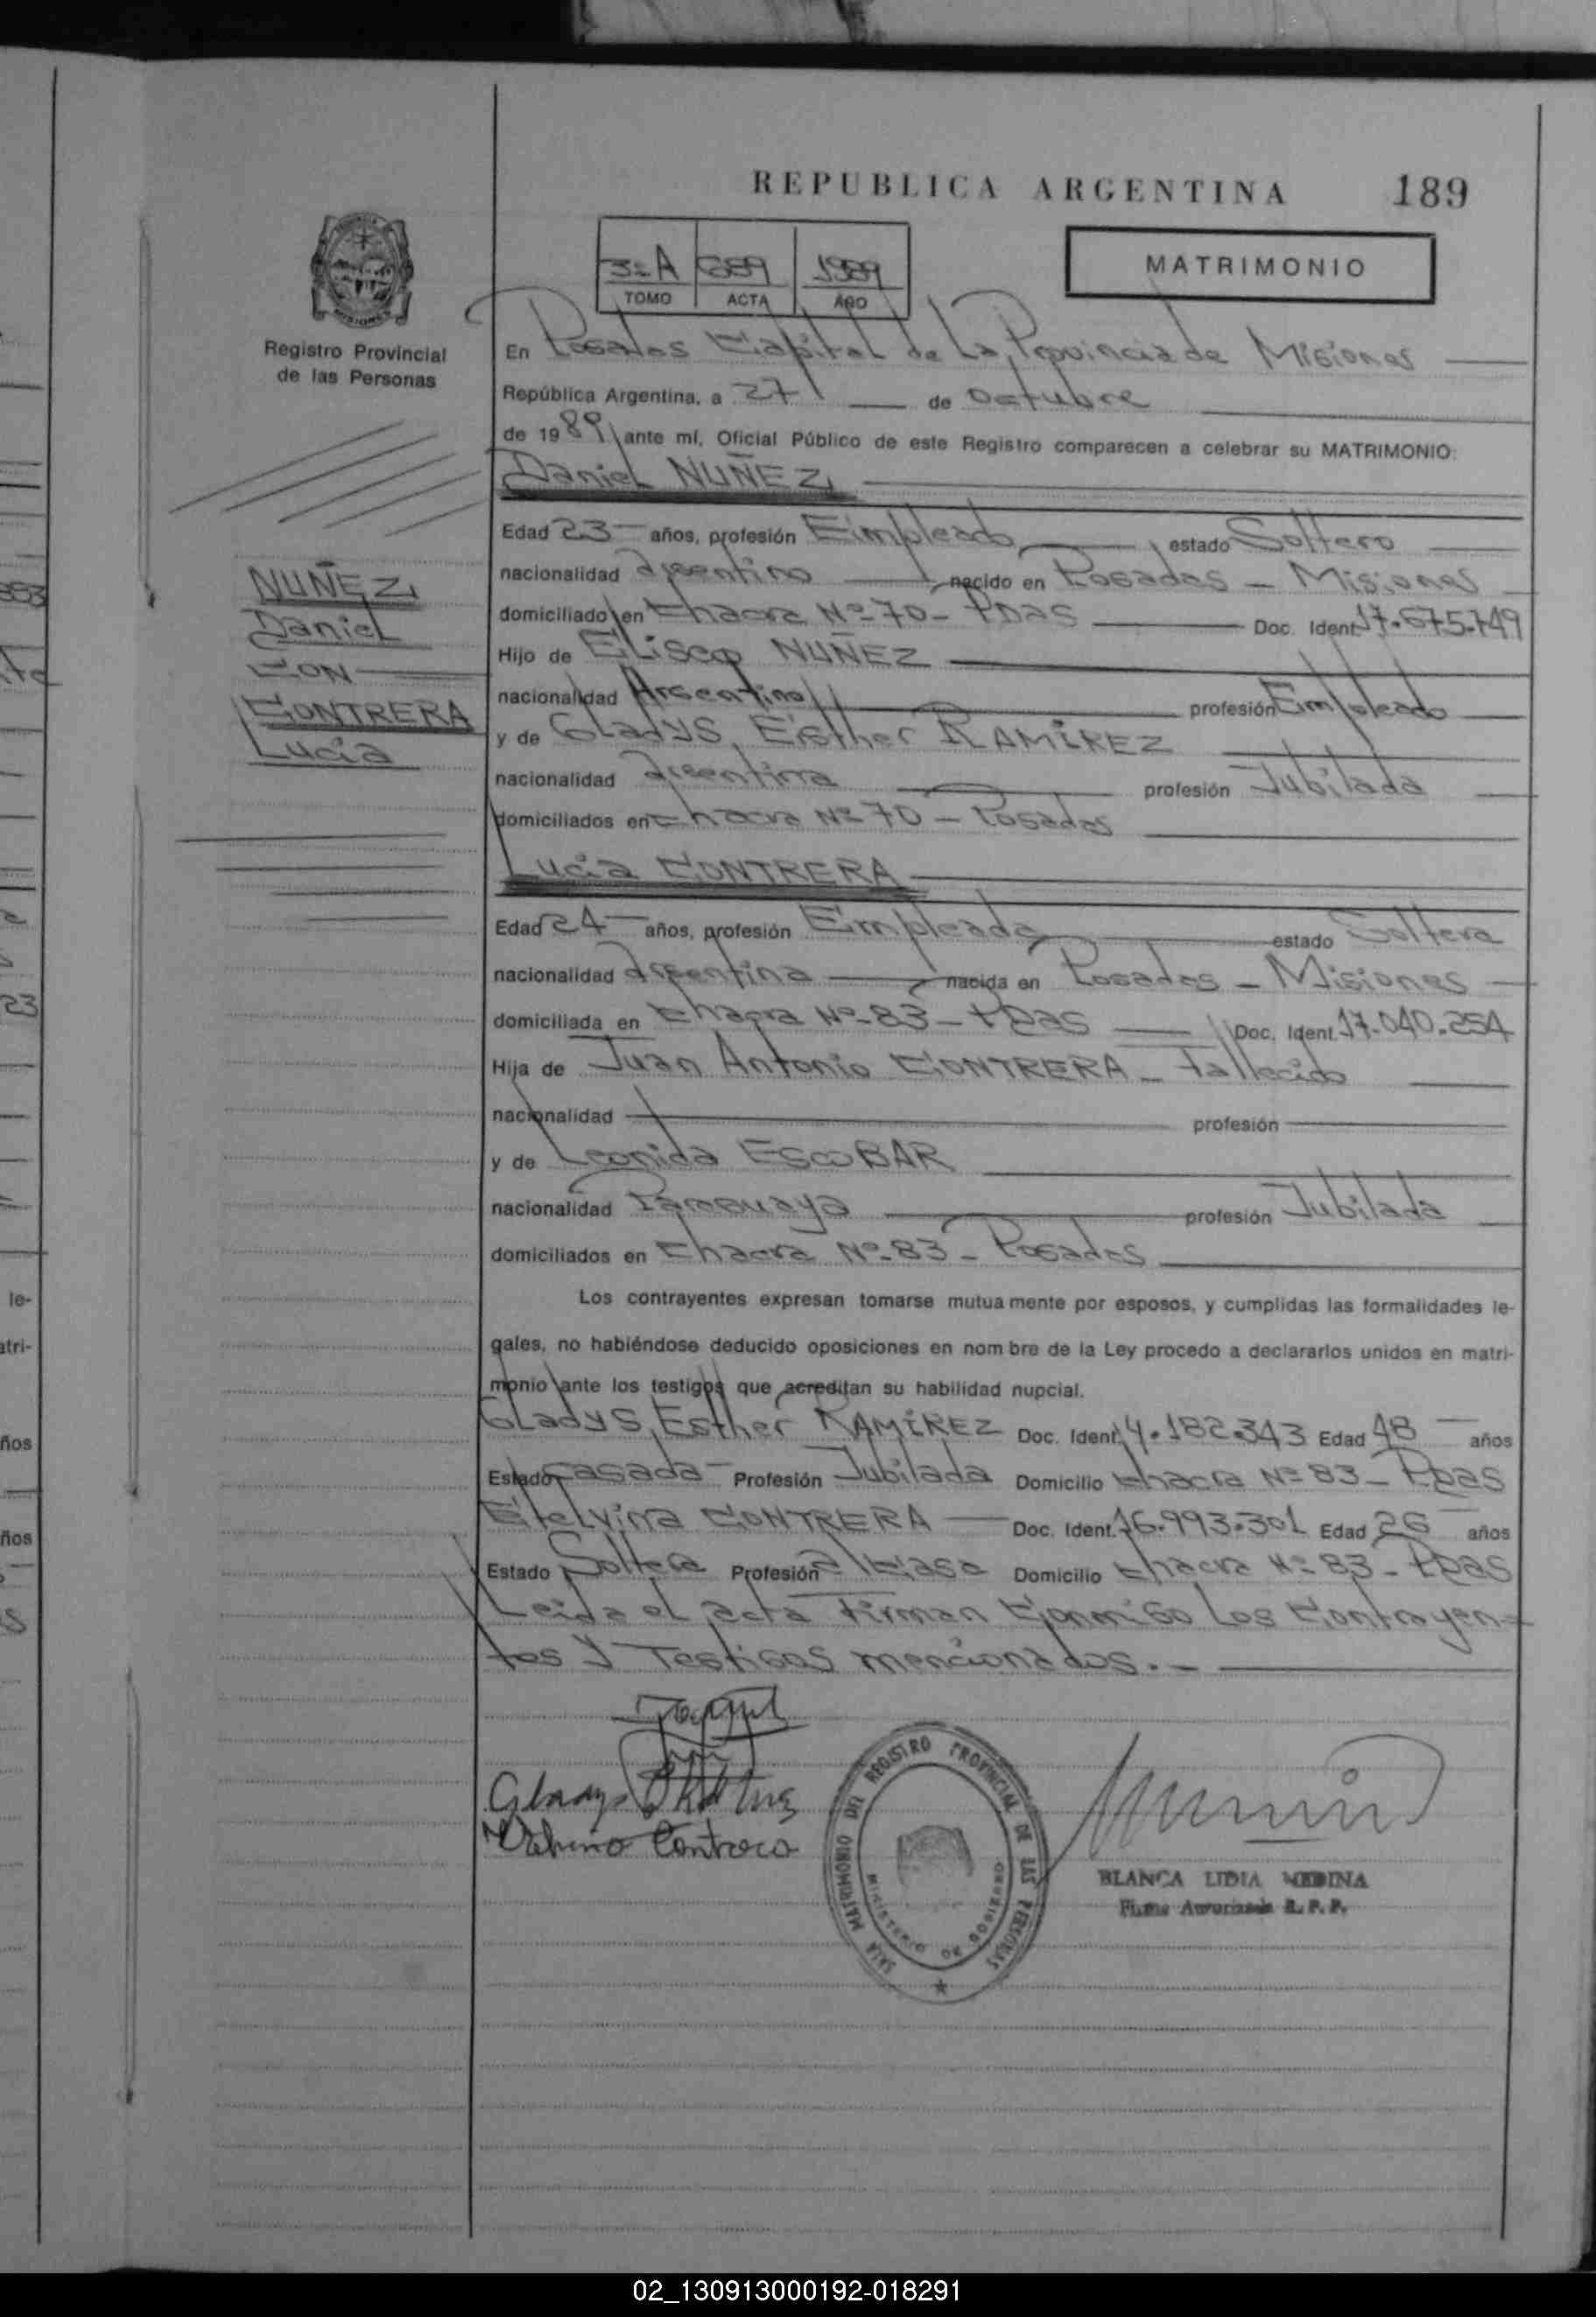 REPUBLICA ARGENTINA 189
3=A 689 1989
TOMO ACTA AÑO
MATRIMONIO
MISIONES
Registro Provincial
de las Personas
En Posadas Capital de La Provincia de Misiones
República Argentina, a 27 de octubre
de 1989 ante mí, Oficial Público de este Registro comparecen a celebrar su MATRIMONIO:
Daniel NUÑEZ
Edad 23 años, profesión Empleado estado Soltero
nacionalidad argentino nacido en Posadas - Misiones
domiciliado en Chacra Nº 70 - Pdas Doc. Ident. 17.675.749
Hijo de Eliseo NUÑEZ
nacionalidad Argentino profesión Empleado
y de Gladys Esther RAMÍREZ
nacionalidad argentina profesión Jubilada
domiciliados en Chacra Nº 70 - Posadas
NUÑEZ
Daniel
CON
CONTRERA
Lucia
Lucia CONTRERA
Edad 24 años, profesión Empleada estado Soltera
nacionalidad argentina nacida en Posadas - Misiones
domiciliada en Chacra Nº 83 - Pdas Doc. Ident. 17.040.254
Hija de Juan Antonio CONTRERA - Fallecido
nacionalidad profesión
y de Leonida ESCOBAR
nacionalidad Paraguaya profesión Jubilada
domiciliados en Chacra Nº 83 - Posadas
Los contrayentes expresan tomarse mutuamente por esposos, y cumplidas las formalidades le-
gales, no habiéndose deducido oposiciones en nombre de la Ley procedo a declararlos unidos en matri-
monio ante los testigos que acreditan su habilidad nupcial.
Gladys Esther RAMÍREZ Doc. Ident. 4.182.343 Edad 48 años
Estado casada Profesión Jubilada Domicilio Chacra Nº 83 - Pdas
Etelvina CONTRERA Doc. Ident. 16.993.301 Edad 26 años
Estado Soltera Profesión a/casa Domicilio Chacra Nº 83 - Pdas
Leida el acta Firman Conmigo Los Contrayen-
tes y Testigos mencionados. -
Gladys
Contrera
SALA MATRIMONIO DEL REGISTRO PROVINCIAL DE LAS PERSONAS
MINISTERIO DE GOBIERNO
BLANCA LIDIA MEDINA
Firma Autorizada R. P. P.
02_130913000192-018291